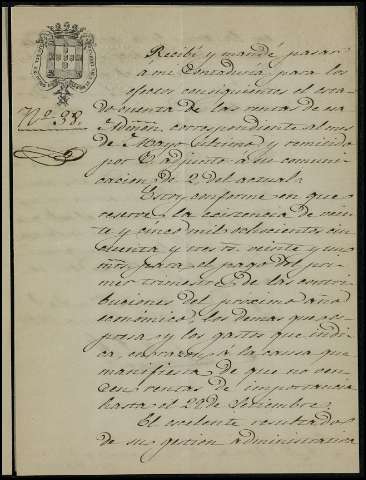 Nº 38.
Recibí y mandé pasar
á mi Contaduría para los
efectos consiguientes el esta-
do cuenta de las rentas de esa
Admón. correspondiente al mes
de Mayo último y remitido
por V. adjunto a su comuni-
cacion de 2 del actual.
Estoy conforme en que
reserve la existencia de vein-
te y cinco mil ochocientos cin-
cuenta y tres rs. veinte y un
mrs. para el pago del pri-
mer trimestre de las contri-
buciones del procsimo año
económico, los demas que se
espresa, y los gastos que indi-
ca, en razon á la causa que
manifiesta de que no ven-
cen rentas de importancia
hasta el 29 de Setiembre.
El escelente resultado
de su gestion administrativa